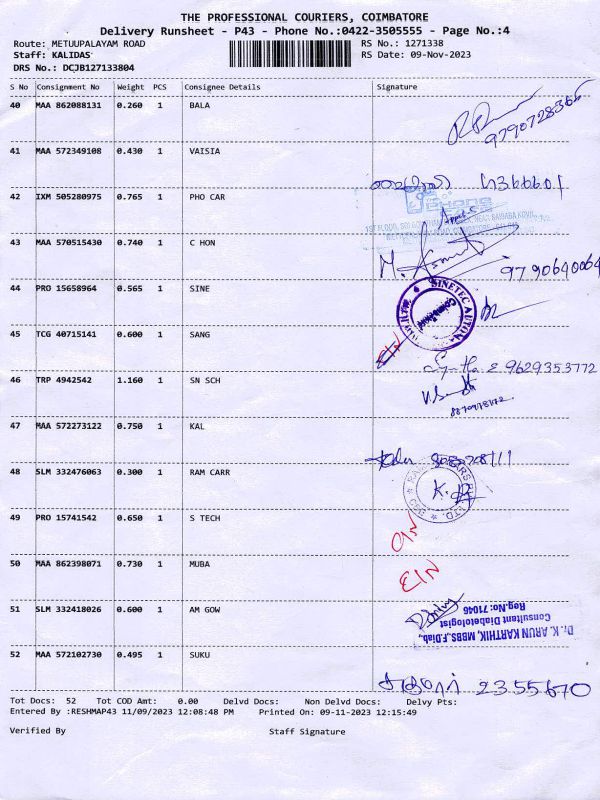 THE PROFESSIONAL COURIERS, COIMBATORE
Delivery Runsheet - P43 - Phone No.:0422-3505555 - Page No.:4
Route: METUUPALAYAM ROAD
RS No.: 1271338
Staff: KALIDAS
RS Date: 09-Nov-2023
DRS No.: DCJB127133804
S No Consignment No Weight PCS Consignee Details Signature
40 MAA 862088131 0.260 1 BALA
9790728365
41 MAA 572349108 0.430 1 VAISIA
42 IXM 505280975 0.765 1 PHO CAR
43 MAA 570515430 0.740 1 C HON
9790640064
44 PRO 15658964 0.565 1 SINE
SINETEC AUTOM
Coimbatore
45 TCG 40715141 0.600 1 SANG
9629353772
46 TRP 4942542 1.160 1 SN SCH
47 MAA 572273122 0.750 1 KAL
48 SLM 332476063 0.300 1 RAM CARR
49 PRO 15741542 0.650 1 S TECH
50 MAA 862398071 0.730 1 MUBA
51 SLM 332418026 0.600 1 AM GOW
Dr. K. ARUN KARTHIK, MBBS.F.Diab.,
Consultant Diabetologist
Reg.No: 71046
52 MAA 572102730 0.495 1 SUKU
2355670
Tot Docs: 52 Tot COD Amt: 0.00 Delvd Docs: Non Delvd Docs: Delvy Pts:
Entered By :RESHMAP43 11/09/2023 12:08:48 PM Printed On: 09-11-2023 12:15:49
Verified By Staff Signature